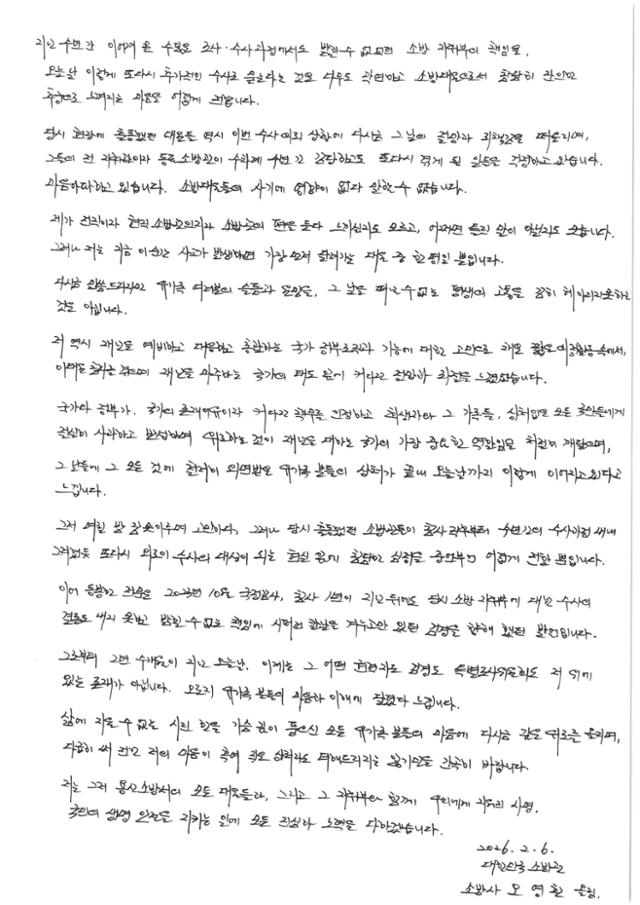 지난 수년간 이어져 온 수많은 조사·수사과정에서도 밝힐 수 없었던 소방 지휘부의 책임을,
오늘날 이렇게 또다시 추가적인 수사로 묻는다는 것은 너무도 가혹하고 소방대원으로서 참담히
마음을 어렵게 전합니다.
당시 현장에 출동했던 대원들 역시 이번 수사 의뢰 상황에 다시금 그날의 절망과 죄책감을 떠올리며,
그들의 전 지휘관이자 동료 소방관이 수차례 수년 간 감당하고도 또다시 겪게 될 일들을 걱정하고 있습니다.
마음아파하고 있습니다. 소방대원들의 사기에 영향이 없다 할 수 없습니다.
제가 전직이라 현직 소방관의 편을 든다 느끼실지도 모르고, 어쩌면 틀린 말이 아닐지도 모릅니다.
그러나 저는 지금 이 순간 사고가 발생하면 가장 먼저 달려가는 대원 중 한 명일 뿐입니다.
다시금 말씀드리지만 유가족 여러분의 슬픔과 그 날을 떠날 수 없는 평생의 고통을 감히 헤아리지 못하는
것은 아닙니다.
저 역시 재난을 예비하고 대응하고 총괄하는 국가 정부조직과 기능에 대한 고민으로 해온 짧은 의정활동 속에서,
재난을 마주하는 국가의 태도 앞에 커다란 절망과 좌절을 느꼈었습니다.
국가나 정부가, 국가의 존재이유이자 커다란 책무를 인정하고 희생자와 그 가족들, 상처입은 모든 국민들에게
진심어 사과하고 반성하며 위로하는 것이 재난을 대하는 국가의 가장 중요한 역할임을 처절히 깨달으며,
그 날들에 그 모든 것에 철저히 외면받은 유가족 분들의 상처가 끝내 오늘날까지 이렇게 이어지고 있다고
느낍니다.
그저 며칠 밤 잠 못 이루며 고민하다, 그러나 당시 출동했던 소방관들이 참사 직후부터 수년간의 수사과정 내내
그러했듯 또다시 외로이 수사의 대상이 되는 현실 앞에 참담한 심정을 어렵게 전할 뿐입니다.
이어 동봉한 2023년 10월 국정감사, 참사 1년이 지난 뒤에도 당시 소방 지휘부에 대한 수사의
결론도 내지 못하고 밝힐 수 없는 책임에 시퍼런 칼날을 겨누고만 있던 검경을 향해 했던 발언입니다.
그로부터 2년 수개월이 지난 오늘날, 이제는 그 어떤 권력자도 검경도 특별조사위원회도 저 위에
있는 존재가 아닙니다. 오로지 유가족 분들의 마음과 이해에 달렸다 느낍니다.
삶에 지울 수 없는 시린 한을 가슴 깊이 품으신 모든 유가족 분들의 마음에 다시금 깊은 위로를 올리며,
다급히 써 내린 저의 마음이 혹여 작은 상처라도 더해드리지는 않기만을 간곡히 바랍니다.
저는 그저 용산소방서의 모든 대원들과, 그리고 그 지휘부와 함께 우리에게 주어진 사명,
국민의 생명 안전을 지키는 일에 모든 진심과 노력을 다하겠습니다.
2026. 2. 6.
대한민국 소방관
소방사 오영환 올림.